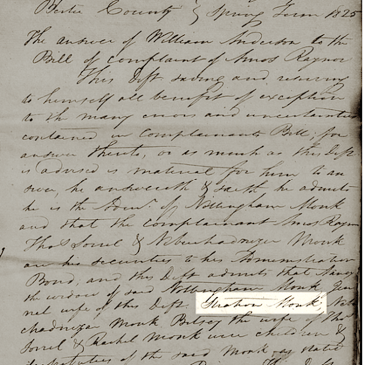 Bertie County } Spring Term 1825
The answer of William Anderson to the
Bill of complaint of Amos Raynor
This Deft saving and reserving
to himself all benefit of exception
to the many errors and uncertainties
contained in Complainants Bill; for
answer thereto, or as much as this Deft
is advised is material for him to an
swer, he answereth & saith, he admits
he is the Admr. of Nottingham Monk
and that the complainant Amos Raynor
Thos Sorrel & Nebuchadnezar Monk
are his securities to his Administration
Bond, and this Deft admits that Nancy
the widow of said Nottingham Monk
wife of this Deft Strahon Monk,
chadnezar Monk Betsey the wife of Thos
Sorrel & Rachel Monk were children &
of the said Monk as stated